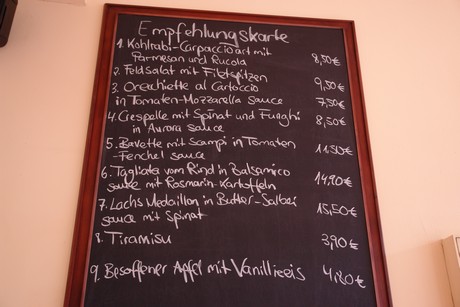 Empfehlungskarte
1. Kohlrabi-Carpaccio art mit
Parmesan und Rucola 8,50€
2. Feldsalat mit Filetspitzen 9,50€
3. Orecchiette al Cartoccio
in Tomaten-Mozzarella sauce 7,50€
4. Crespelle mit Spinat und Funghi
in Aurora sauce 8,50€
5. Bavette mit Scampi in Tomaten
-Fenchel sauce 11.50€
6. Tagliata vom Rind in Balsamico
sauce mit Rosmarin-Kartoffeln 14,90€
7. Lachs Medaillon in Butter-Salbei
sauce mit Spinat 15,50€
8. Tiramisu 3,90€
9. Besoffener Apfel mit Vanilleeis 4,80€